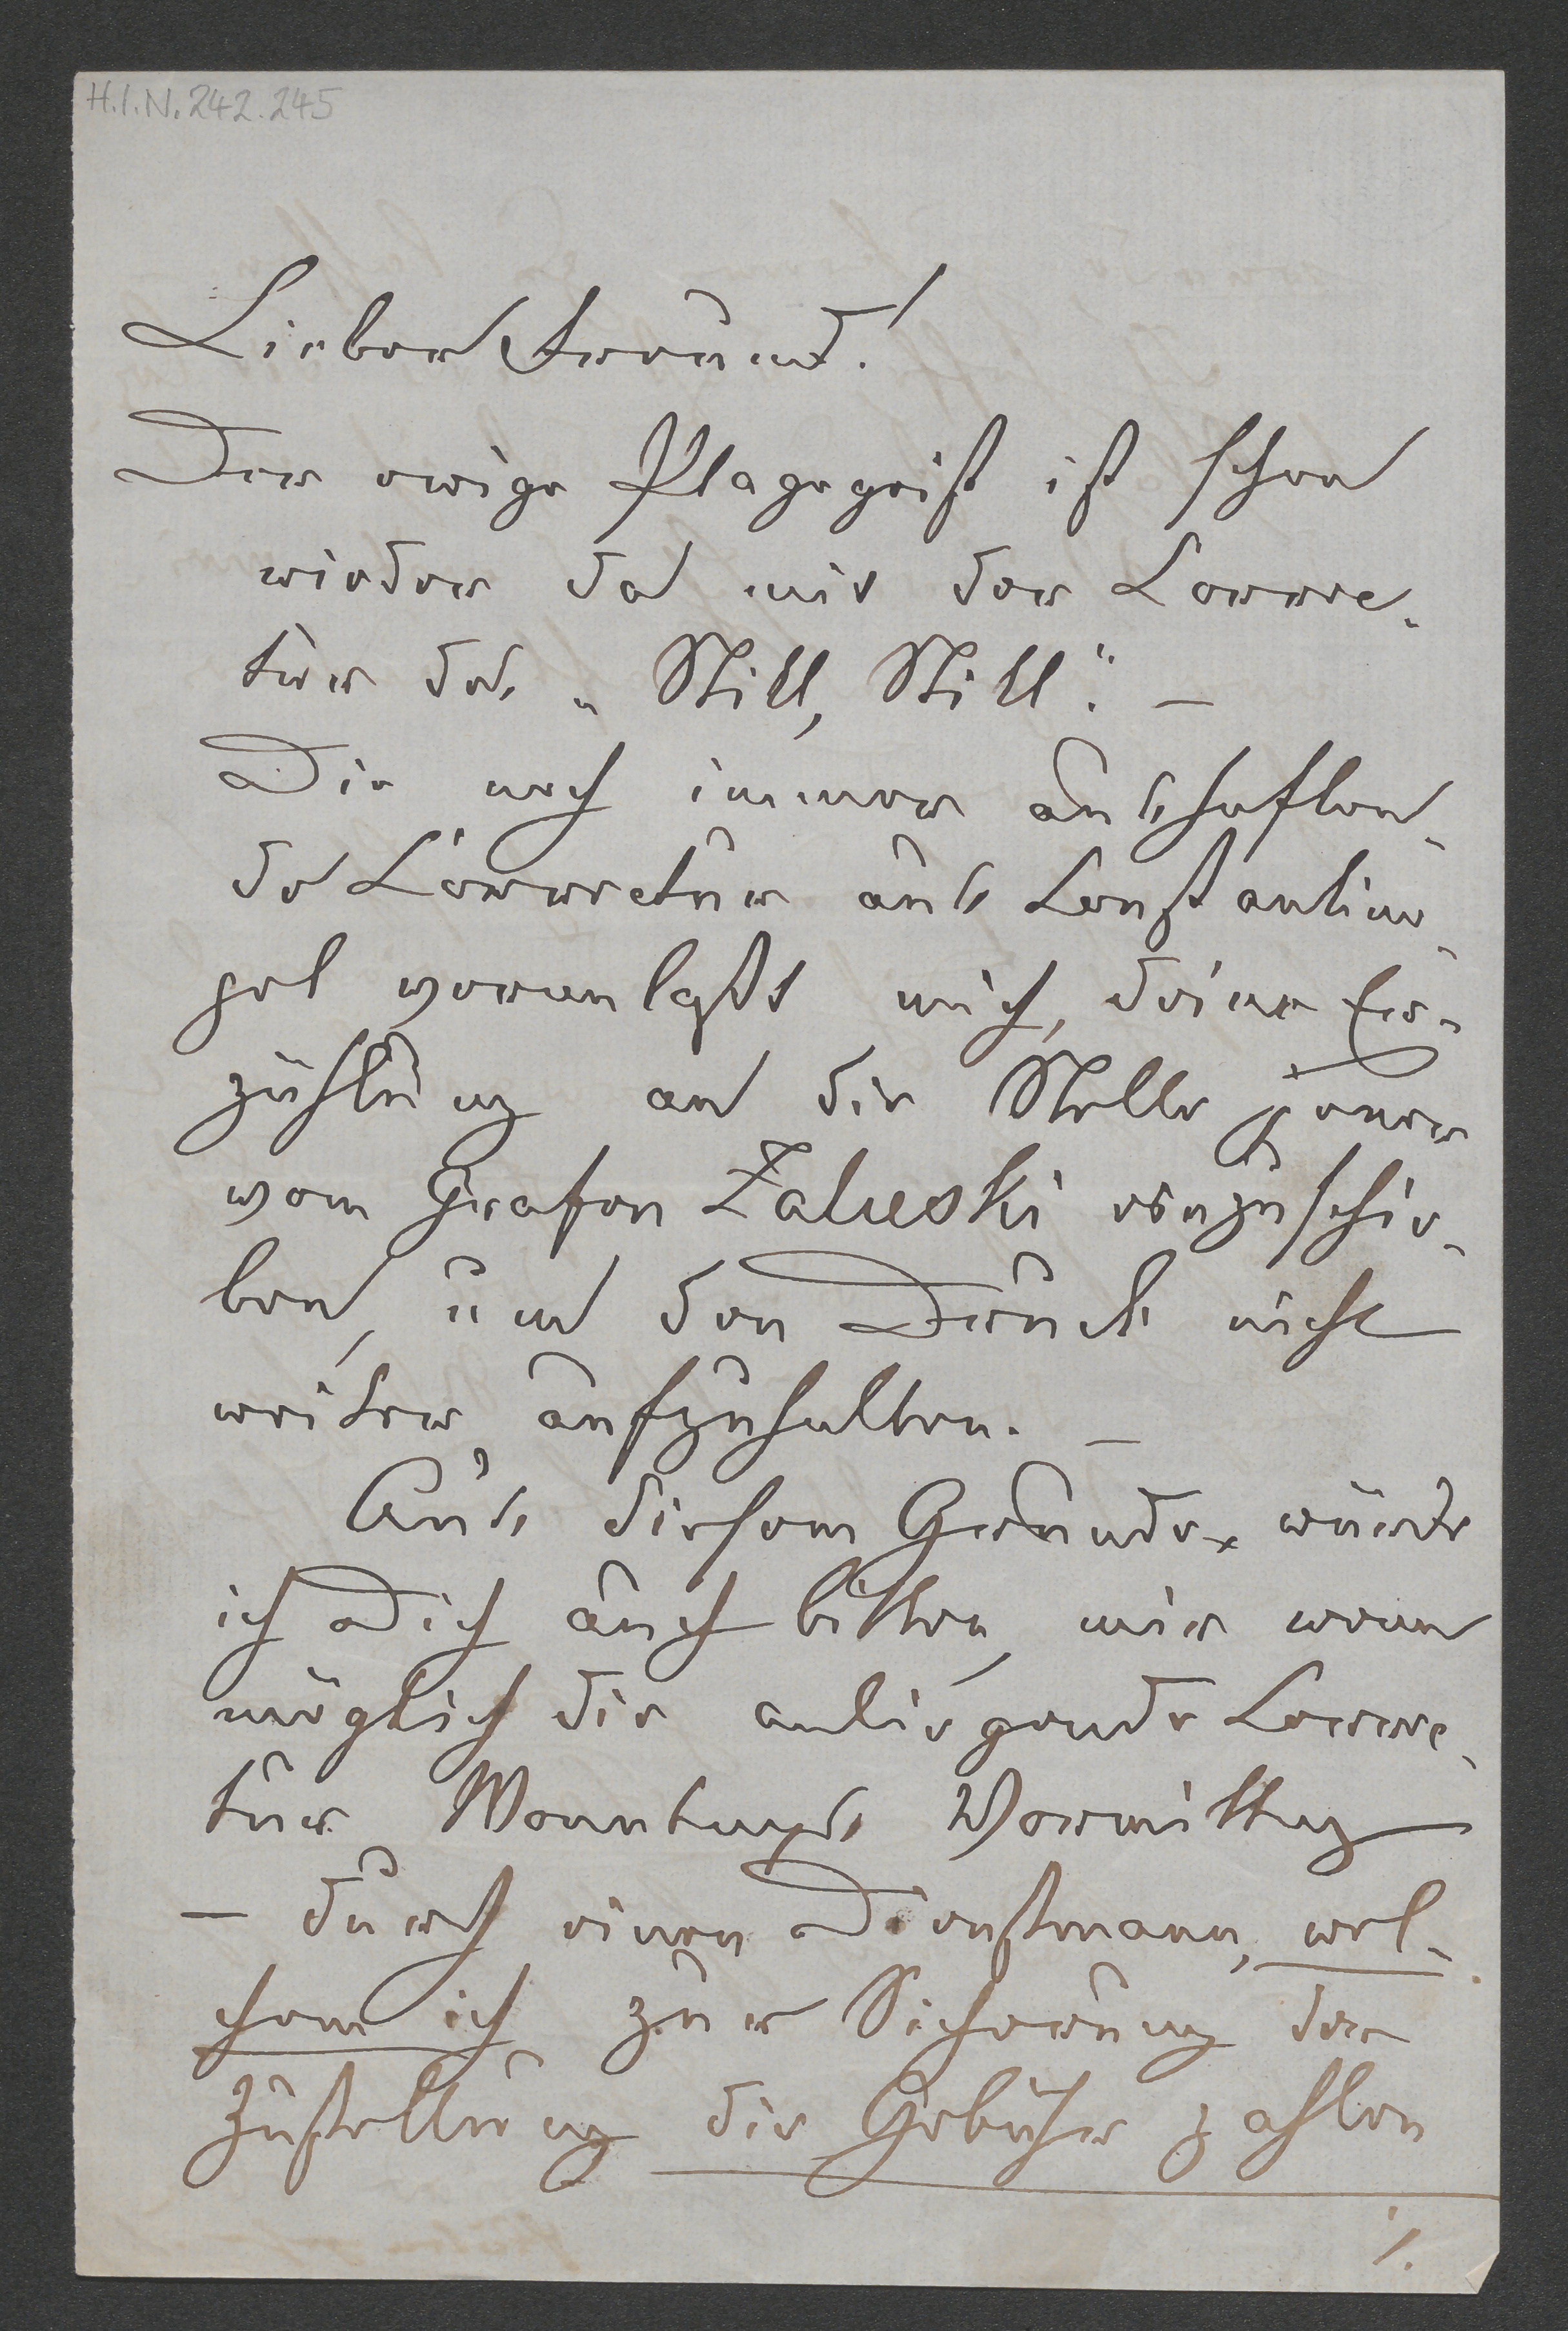 H.I.N. 242.245
Lieber Freund!
Der ewige Plagegeist ist schon
wieder da mit der Correc-
tur des „Still, Still". –
Die noch immer ausstehen-
de Correctur aus Constantino-
pel veranlaßt mich, deine Er-
zählung an die Stelle jener
vom Grafen Zaluski
ben, um den Druck nicht
weiter aufzuhalten. –
Aus diesem Grunde würde
ich Dich auch bitten, mir wenn
möglich die anliegende Correc-
tur Montags Vormittag
– durch einen Dienstmann, wel-
chem ich zur Sicherung der
Zustellung die Gebühr zahlen
./.